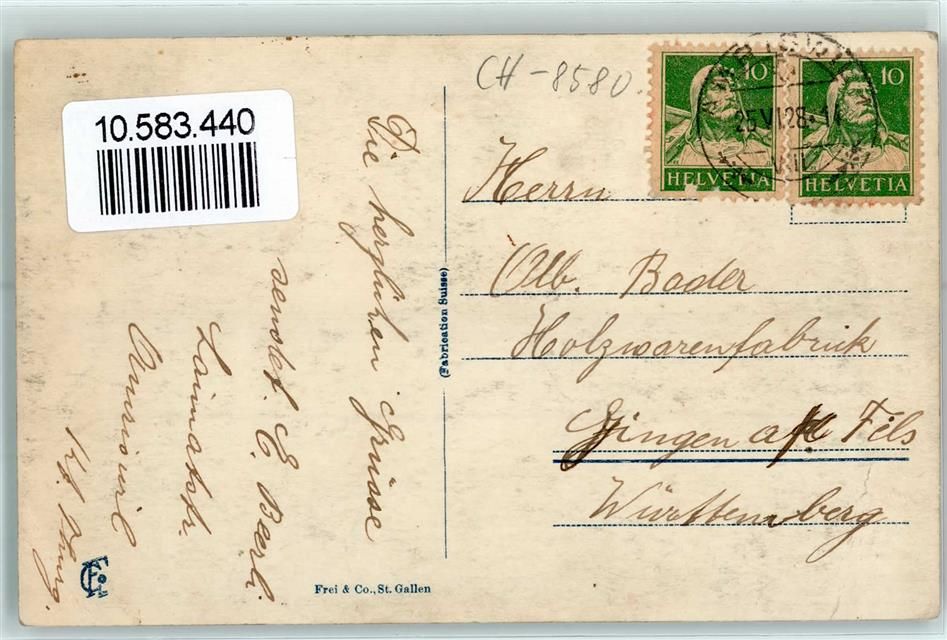 10.583.440
CH-8580.
10
HELVETIA
10
HELVETIA
25.VI.28.
Herrn
Alb. Bader
Holzwarenfabrik
Gingen a/ Fils
Württemberg
Die herzlichen Grüsse
sendet E.
Amriswil
Kt. Thurg.
(Fabrication Suisse)
Frei & Co., St. Gallen